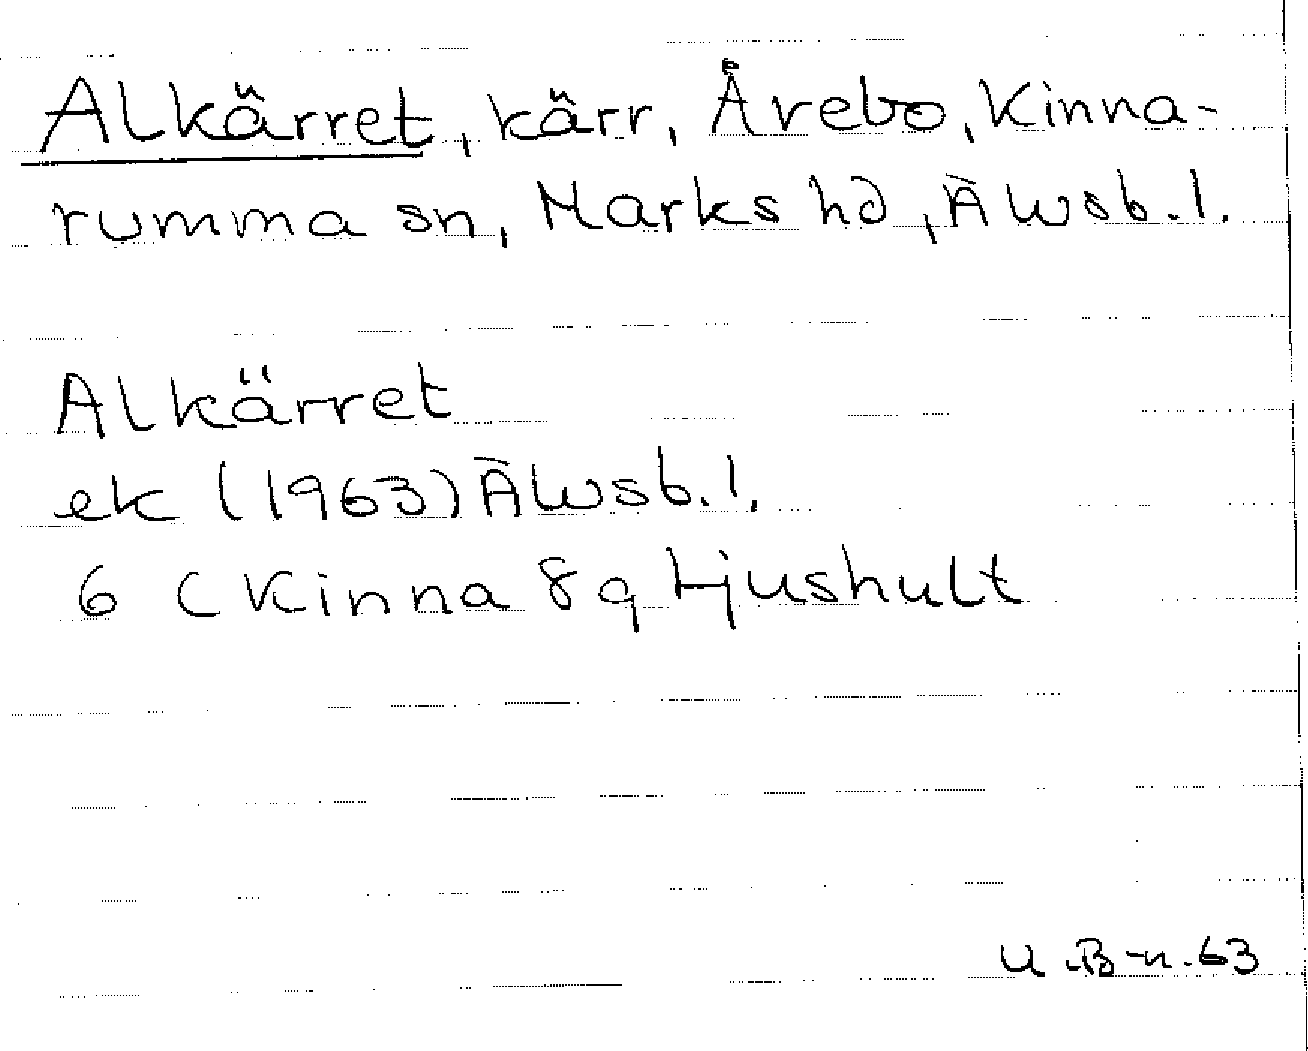 Alkärret, kärr, Årebo, Kinna-
rumma sn, Marks hd, Älvsb. l.
Alkärret
ek (1963) Älvsb. l.
6 C Kinna 8 g Ljushult
U.B-n. 63